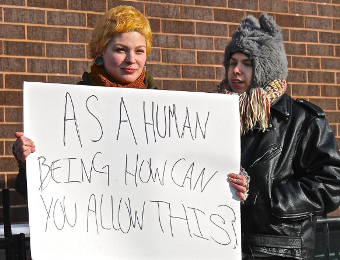 AS A HUMAN
BEING HOW CAN
YOU ALLOW THIS?